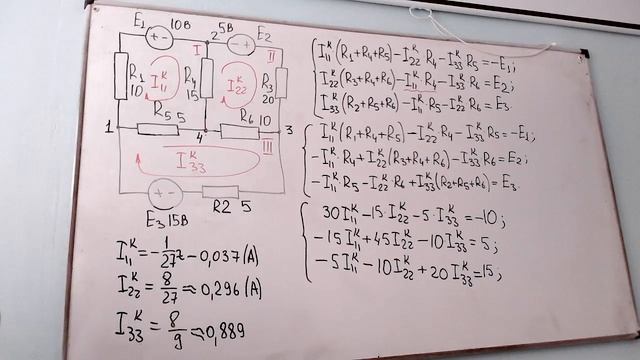 E₁ 10В
2 5В E₂
I II
R₁ 10
I₁₁ᴷ
R₄ 15
I₂₂ᴷ
R₃ 20
R₅ 5
R₆ 10
1 4 3
III
I₃₃ᴷ
E₃ 15В
R2 5
I₁₁ᴷ = -1/27 ≈ -0,037 (A)
I₂₂ᴷ = 8/27 ≈ 0,296 (A)
I₃₃ᴷ = 8/9 ≈ 0,889
I₁₁ᴷ(R₁+R₄+R₅)-I₂₂ᴷ R₄-I₃₃ᴷ R₅=-E₁;
I₂₂ᴷ(R₃+R₄+R₆)-I₁₁ᴷ R₄-I₃₃ᴷ R₆=E₂;
I₃₃ᴷ(R₂+R₅+R₆)-I₁₁ᴷ R₅-I₂₂ᴷ R₆=E₃.
I₁₁ᴷ(R₁+R₄+R₅)-I₂₂ᴷ R₄-I₃₃ᴷ R₅=-E₁;
-I₁₁ᴷ·R₄+I₂₂ᴷ(R₃+R₄+R₆)-I₃₃ᴷ R₆=E₂;
-I₁₁ᴷ·R₅-I₂₂ᴷ·R₆+I₃₃ᴷ(R₂+R₅+R₆)=E₃.
30I₁₁ᴷ-15·I₂₂ᴷ-5·I₃₃ᴷ=-10;
-15I₁₁ᴷ+45I₂₂ᴷ-10I₃₃ᴷ=5;
-5I₁₁ᴷ-10I₂₂ᴷ+20I₃₃ᴷ=15;